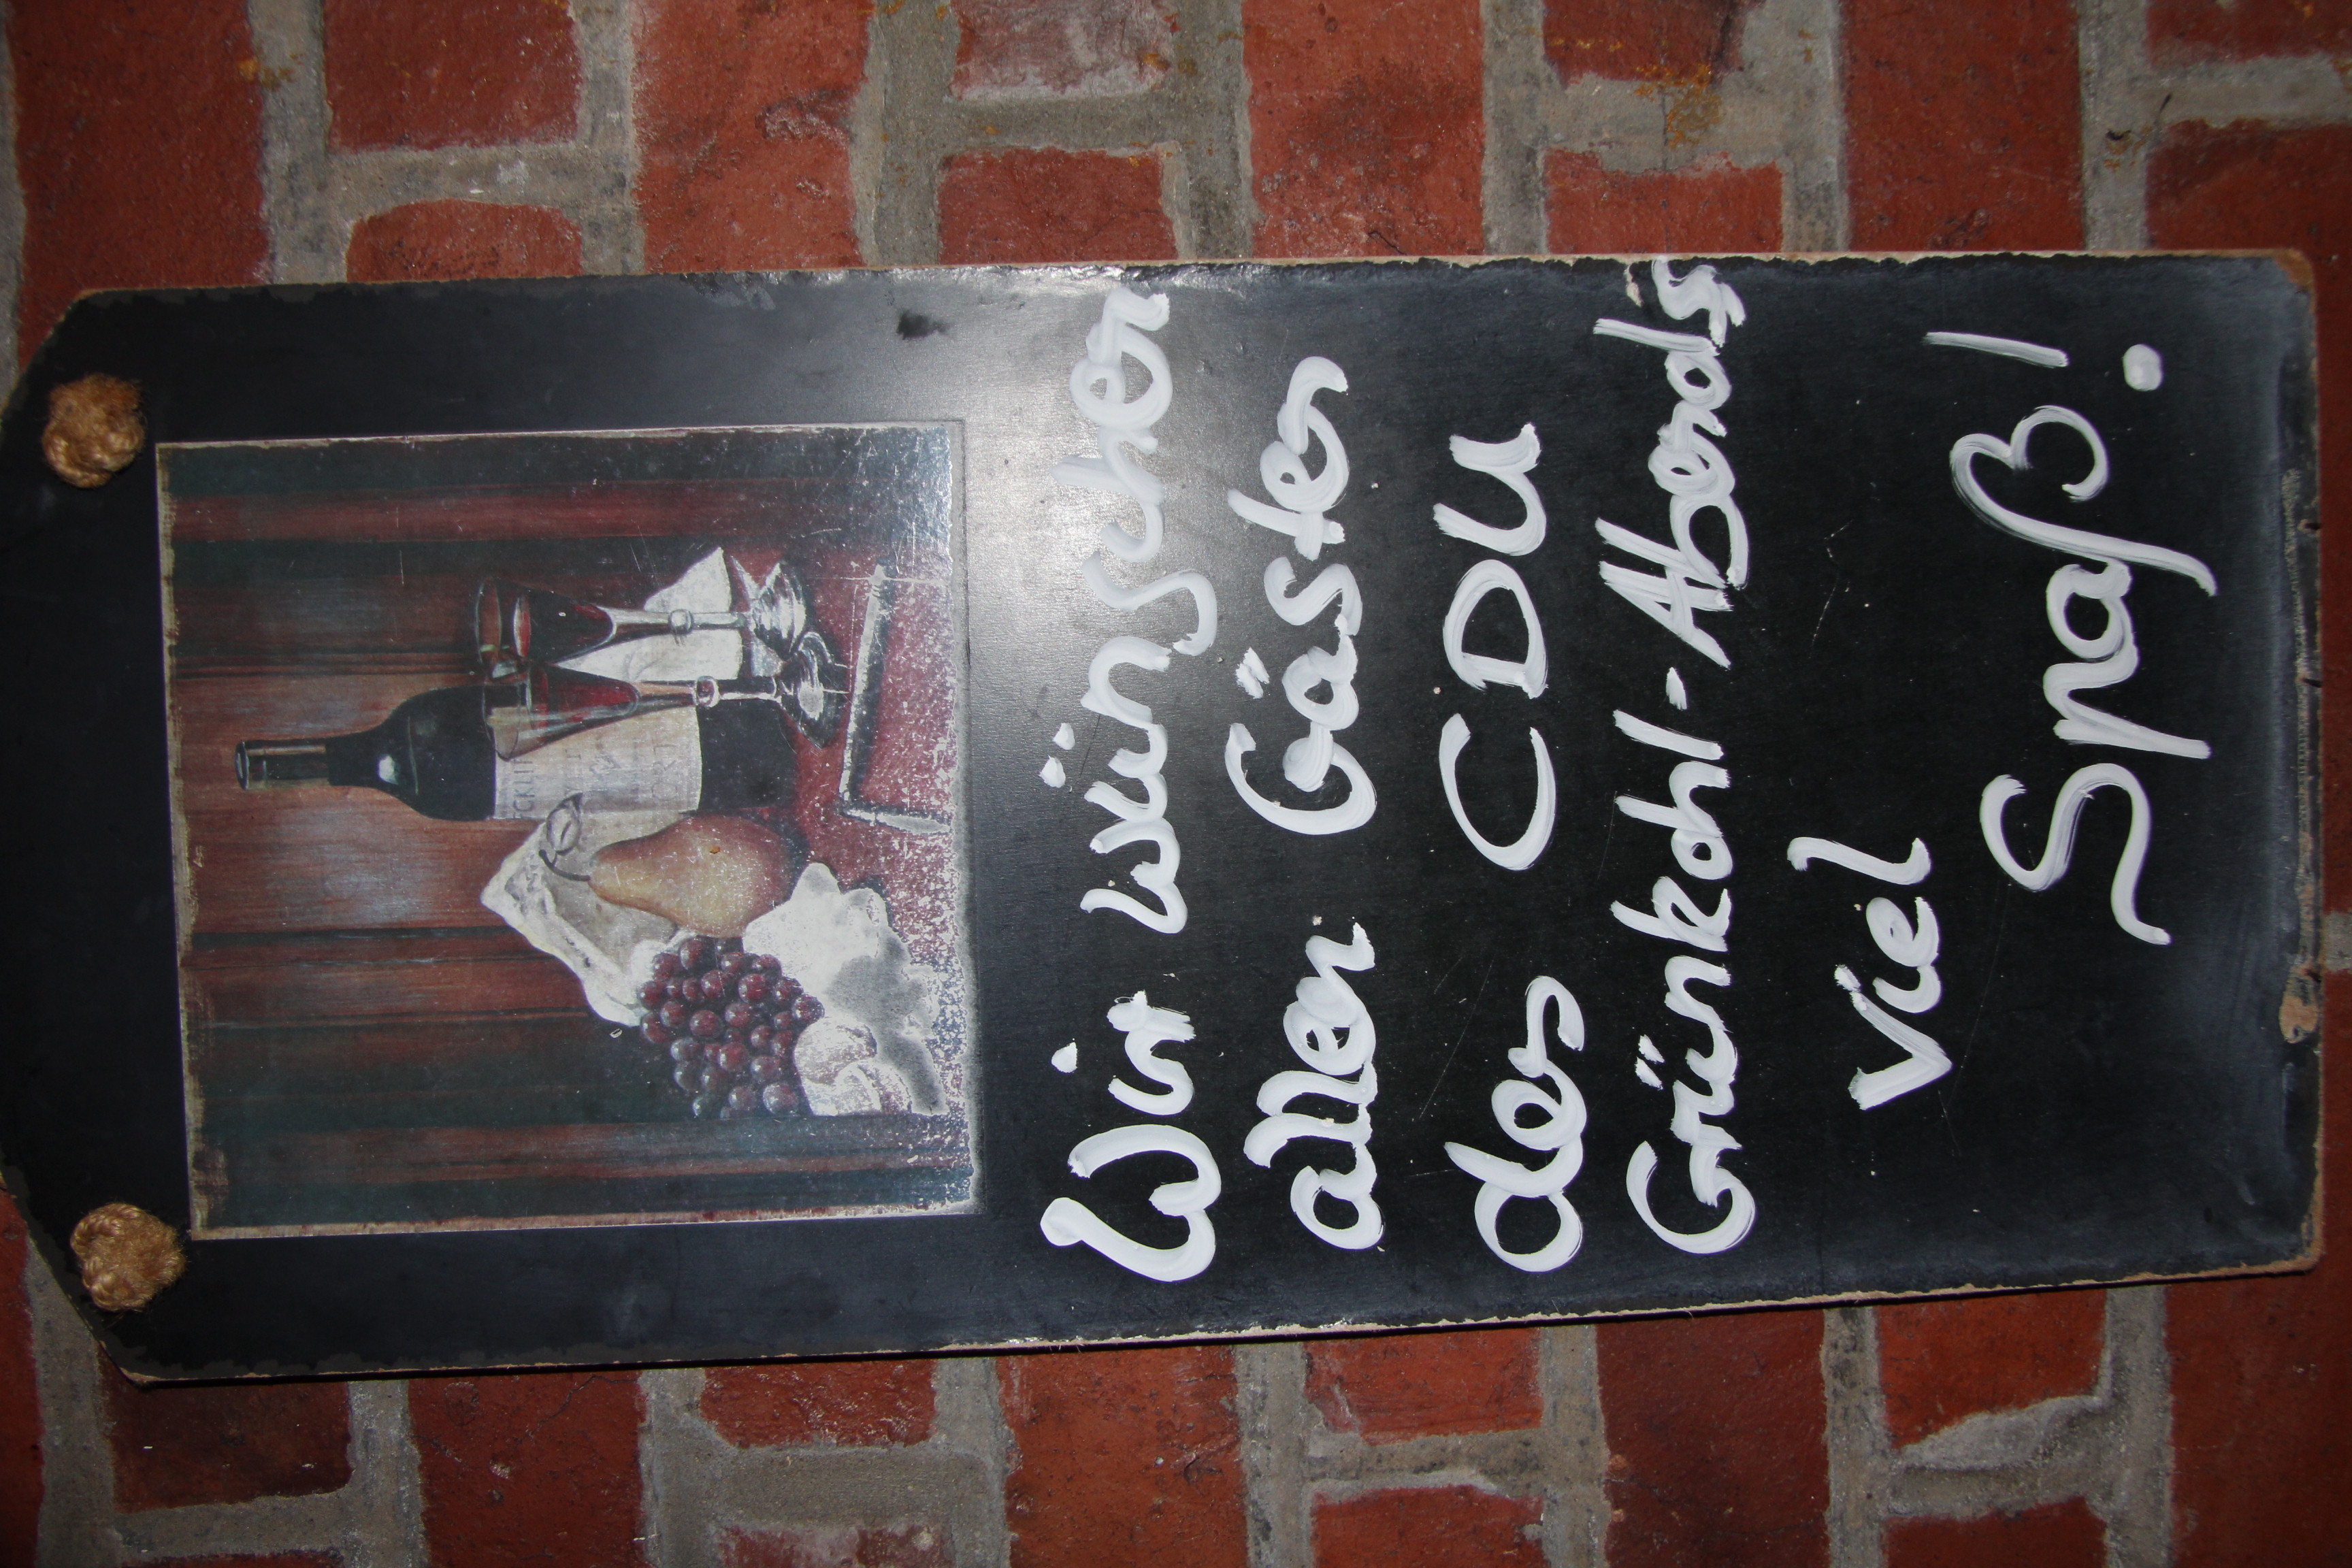 Wir wünschen
allen Gästen
des CDU
Grünkohl-Abends
viel
Spaß!